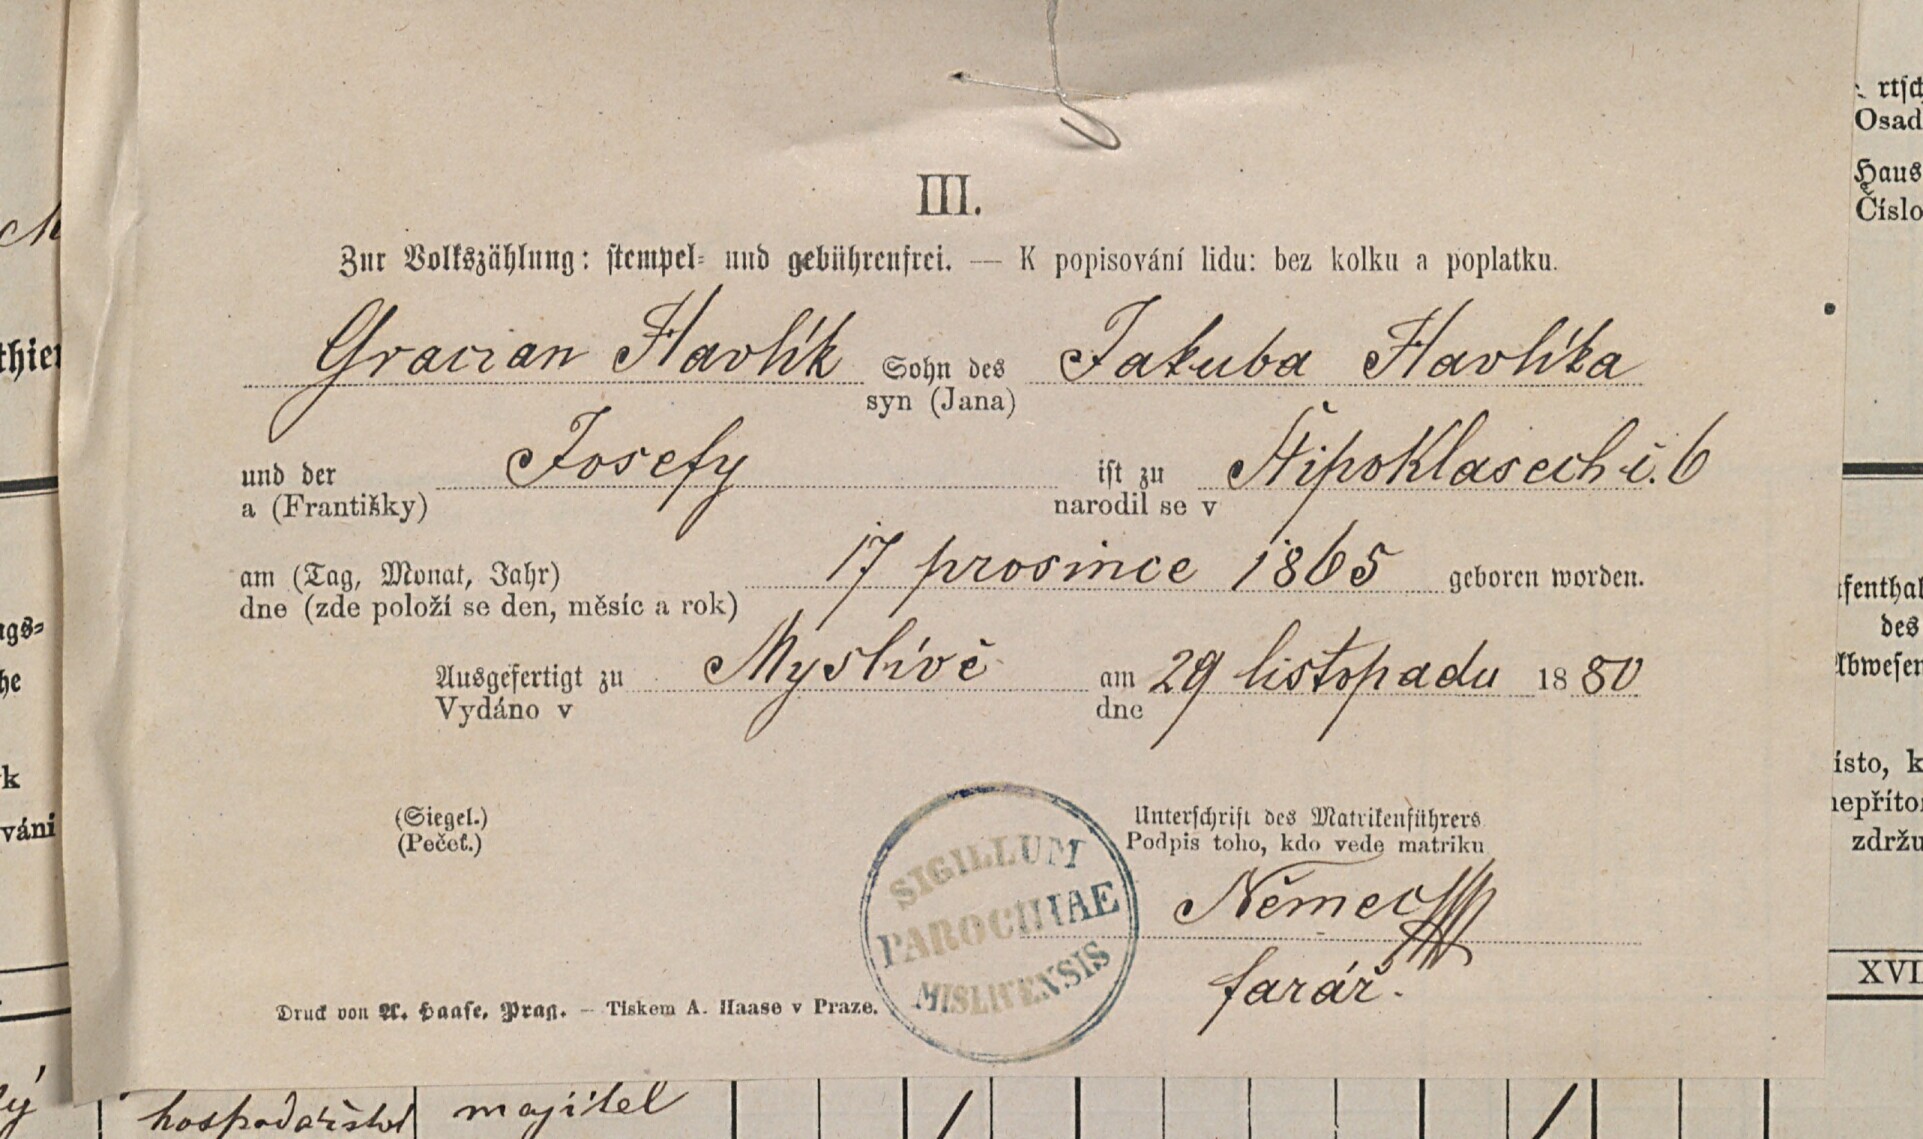 III.
Zur Volkszählung: stempel- und gebührenfrei. — K popisování lidu: bez kolku a poplatku.
Gracian Havlík Sohn des Jakuba Havlíka
syn (Jana)
und der Josefy ist zu Štipoklasech č. 6
a (Františky) narodil se v
am (Tag, Monat, Jahr) 17 prosince 1865 geboren worden.
dne (zde položí se den, měsíc a rok)
Ausgefertigt zu Myslívě am 29 listopadu 1880
Vydáno v dne
(Siegel.) Unterschrift des Matrikenführers
(Pečeť.) Podpis toho, kdo vede matriku
SIGILLUM
PAROCHIAE
MISLIVENSIS
Němec
farář.
Druck von A. Haase, Prag. — Tiskem A. Haase v Praze.
hospodářství majitel
Osad
Haus
Číslo
des
ísto, k
zdržu
XVI